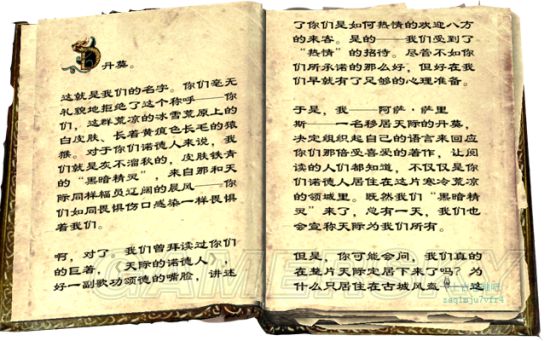 丹莫。
这就是我们的名字。你们毫无
礼貌地拒绝了这个称呼——你
们，这群荒凉的冰雪荒原上的
白皮肤、长着黄痕色长毛的猿
猴。对于你们诺德人来说，我
们就是灰不溜秋的，皮肤铁青
的“黑暗精灵”，来自那和天
际同样幅员辽阔的晨风——你
们如同畏惧伤口感染一样畏惧
着我们。
啊，对了，我们曾拜读过你们
的巨著，《天际的诺德人》，
好一副歌功颂德的嘴脸，讲述
了你们是如何热情的欢迎八方
的来客。是的——我们受到了
“热情”的招待。尽管不如你
们所承诺的那么好，但好在我
们早就有了足够的心理准备。
于是，我——阿萨·萨里
斯——一名移居天际的丹莫，
决定组织起自己的语言来回应
你们那倍受喜爱的著作，让阅
读的人们都知道，不仅仅是你
们诺德人居住在这片寒冷荒凉
的领域里。既然我们“黑暗精
灵”来了，总有一天，我们也
会宣称天际为我们所有。
但是，你可能会问，我们真的
在整片天际定居下来了吗？为
什么只居住在古城风盔
这
GAMERSKY
zaqimju7vfr4